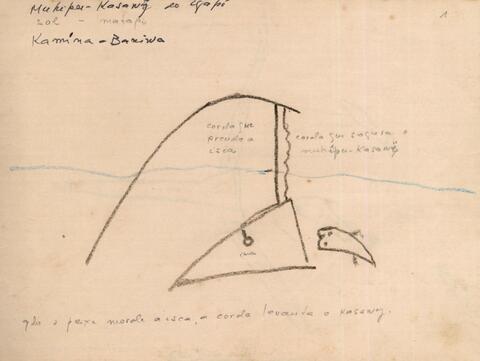 Muhipu-Kasawỹ no Igapó
sol - matapi
1
Kamina - Baniwa
corda que
prende a
isca
corda que segura o
muhipu-kasawỹ
isca
qdo o peixe morde a isca, a corda levanta o kasawỹ.